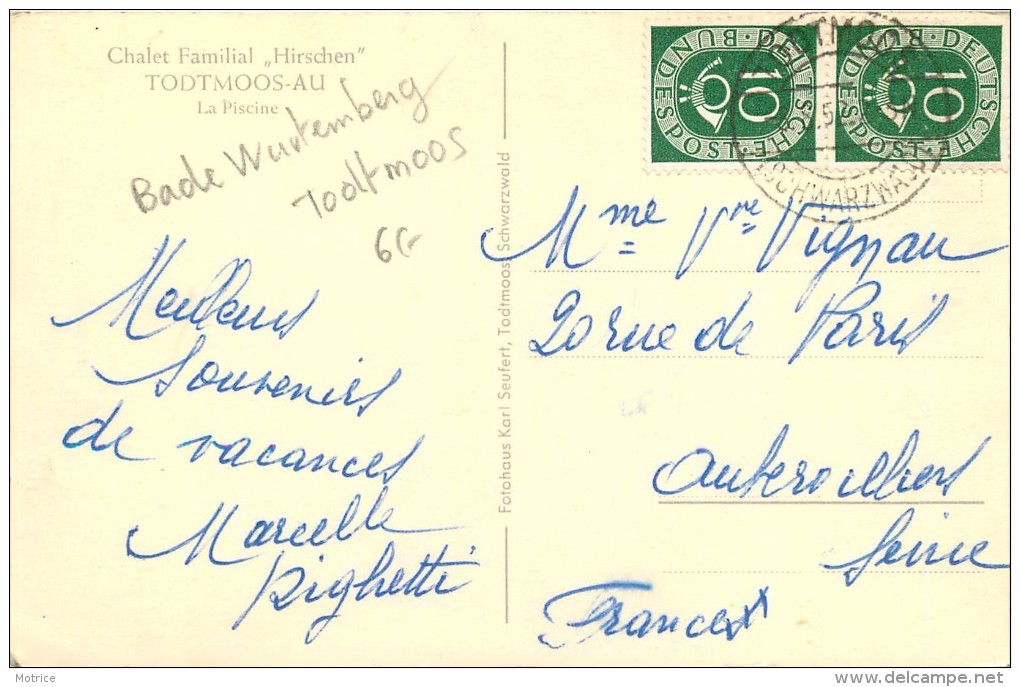 Chalet Familial „Hirschen"
TODTMOOS-AU
La Piscine
Bade Wurtemberg
Todtmoos
6G-
Meilleurs
Souvenirs
de vacances
Marcelle
Righetti
Fotohaus Karl Seufert, Todtmoos, Schwarzwald
10
DEUTSCHE · BUNDESPOST
10
DEUTSCHE · BUNDESPOST
TODTMOOS
(SCHWARZWALD)
Mme Vve Vignau
20 rue de Paris
Aubervilliers
Seine
France
Motrice
www.delcampe.net